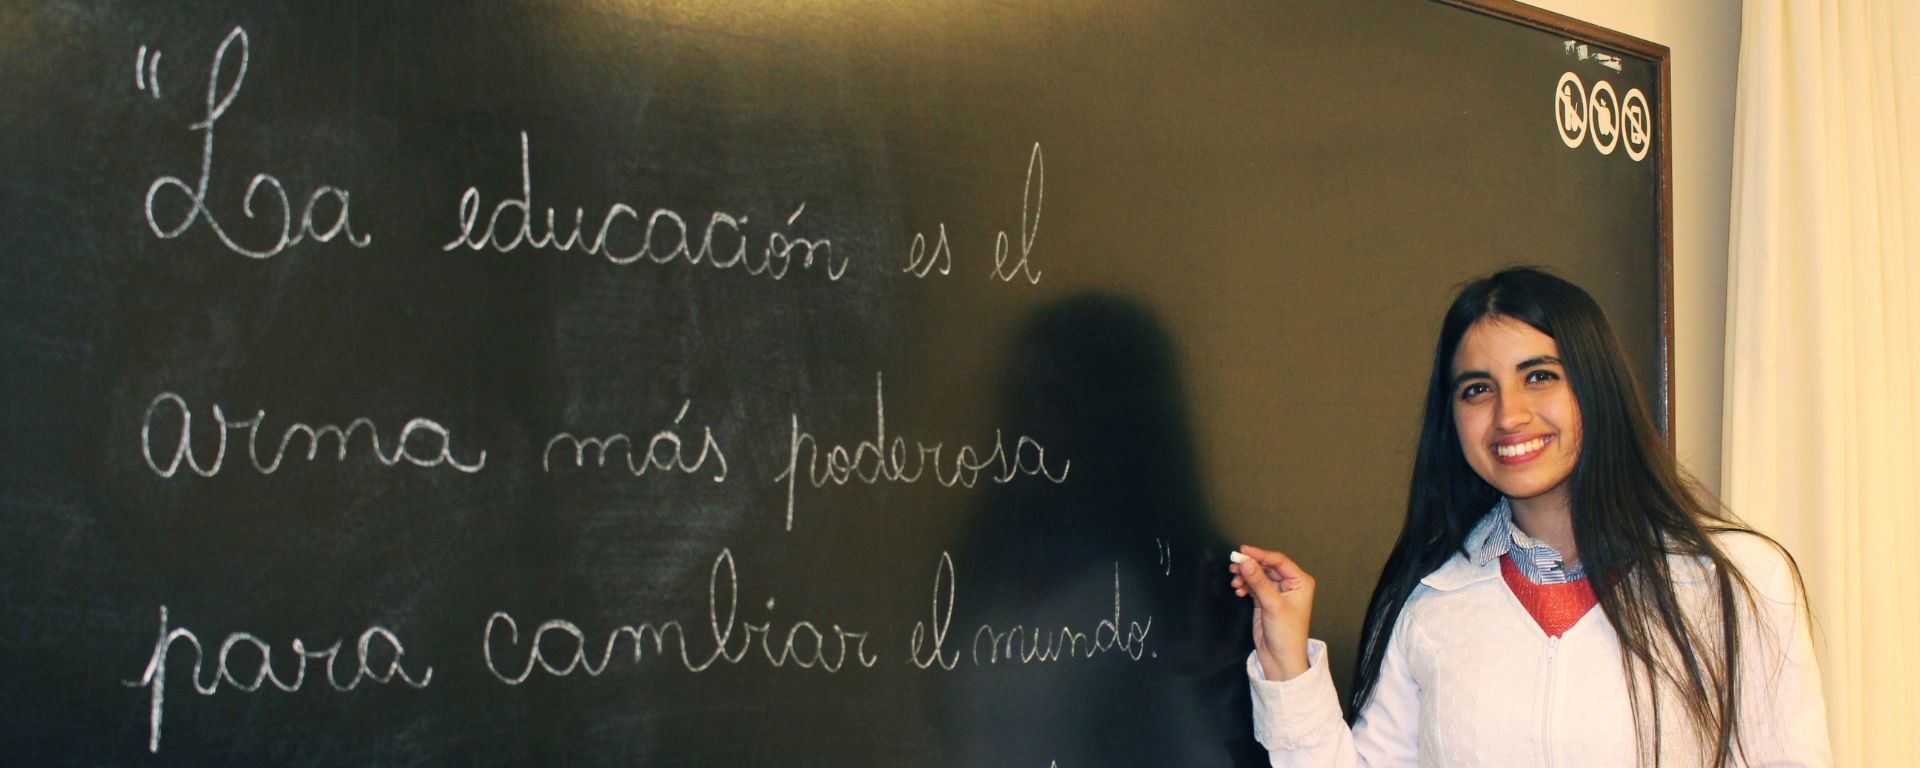 "La educación es el
arma más poderosa
para cambiar el mundo."